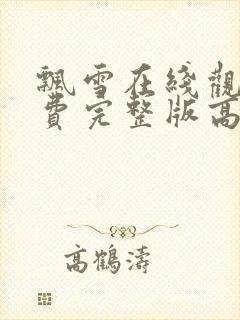 飄雪在綫觀
費完整版高
高鶴濤